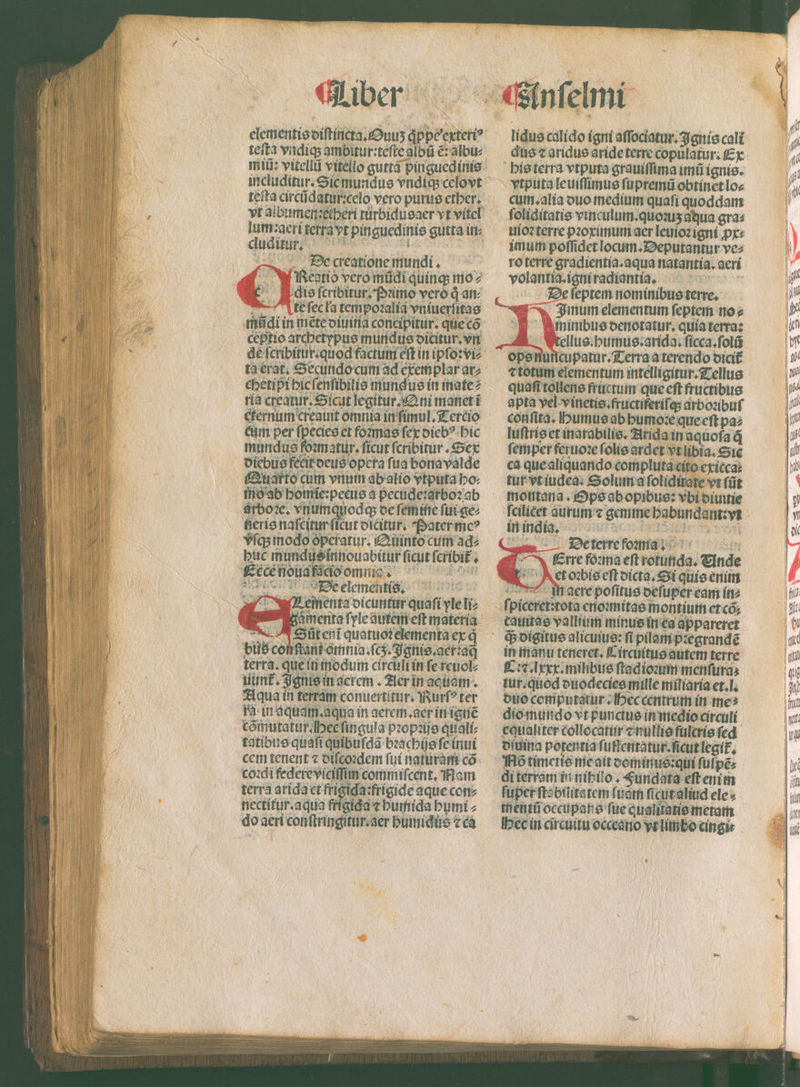 Liber
elementis diſtincta. Ouuʒ q̄ppe exteriꝰ
teſta vndiqꝫ ambitur: teſte albū ē: albu⸗
miū: vitellū vitello gutta pinguedinis
includitur. Sic mundus vndiqꝫ celo vt
teſta circūdatur: celo vero purus ether.
vt albumen: etheri turbidus aer vt vitel
lum: aeri terra vt pinguedinis gutta in⸗
cluditur.
De creatione mundi.
CReatio vero mūdi quinqꝫ mo⸗
dis ſcribitur. Primo vero q̄ an⸗
te ſecľa temporalia vniuerſitas
mūdi in mēte diuina concipitur. que cō
ceptio archetypus mundus dicitur. vn
de ſcribitur. quod factum eſt in ipſo: vi⸗
ta erat. Secundo cum ad exemplar ar⸗
chetipi hic ſenſibilis mundus in mate⸗
ria creatur. Sicut legitur. Qui manet ī
eternum creauit omnia in ſimul. Tercio
cum per ſpecies et formas ſex diebꝰ hic
mundus formatur. ſicut ſcribitur. Sex
diebus fecit deus opera ſua bona valde
Quarto cum vnum ab alio vtputa ho⸗
mo ab homīe: pecus a pecude: arbor ab
arbore. vnumquodqꝫ de ſemine ſui ge⸗
neris naſcitur ſicut dicitur. Pater meꝰ
vſqꝫ modo operatur. Quinto cum ad⸗
huc mundus innouabitur ſicut ſcribit̄.
Ecce noua facio omnia.
De elementis.
ELementa dicuntur quaſi yle li⸗
gamenta ſyle autem eſt materia
Sūt enī quatuor elementa ex q̄
bus conſtant omnia. ſcꝫ. Ignis. aer: aq̄
terra. que in modum circuli in ſe reuol⸗
uunt̄. Ignis in aerem. Aer in aquam.
Aqua in terram conuertitur. Rurſꝰ ter
ra in aquam. aqua in aerem. aer in ignē
cōmutatur. Hec ſingula proprijs quali⸗
tatibus quaſi quibuſdā brachijs ſe inui
cem tenent ⁊ diſcordem ſui naturam cō
cordi federe viciſſim commiſcent. Nam
terra arida et frigida: frigide aque con⸗
nectitur. aqua frigida ⁊ humida humi⸗
do aeri conſtringitur. aer humidus ⁊ ca
Anſelmi
lidus calido igni aſſociatur. Ignis cali
dus ⁊ aridus aride terre copulatur. Ex
his terra vtputa grauiſſima imū ignis.
vtputa leuiſſimus ſupremū obtinet lo⸗
cum. alia duo medium quaſi quoddam
ſoliditatis vinculum. quoruꝫ aqua gra⸗
uior terre proximum aer leuior igni ꝓx⸗
imum poſſidet locum. Deputantur ve⸗
ro terre gradientia. aqua natantia. aeri
volantia. igni radiantia.
De ſeptem nominibus terre.
INimum elementum ſeptem no⸗
minibus denotatur. quia terra:
tellus. humus. arida. ſicca. ſolū
ops nuncupatur. Terra a terendo dicit̄
⁊ totum elementum intelligitur. Tellus
quaſi tollens fructum que eſt fructibus
apta vel vinetis. fructiferiſqꝫ arboribuſ
conſita. Humus ab humore que eſt pa⸗
luſtris et inarabilis. Arida in aquoſa q̄
ſemper feruore ſolis ardet vt libia. Sic
ca que aliquando compluta cito exicca⸗
tur vt iudea. Solum a ſoliditate vt ſūt
montana. Ops ab opibus: vbi diuitie
ſcilicet aurum ⁊ gemme habundant: vt
in india.
De terre forma.
TErre forma eſt rotunda. Unde
et orbis eſt dicta. Si quis enim
in aere poſitus deſuper eam in⸗
ſpiceret: tota enormitas montium et cō⸗
cauitas vallium minus in ea appareret
q̄ꝫ digitus alicuius: ſi pilam pregrandē
in manu teneret. Circuitus autem terre
C: ⁊. lxxx. milibus ſtadiorum menſura⸗
tur. quod duodecies mille miliaria et. l.
duo computatur. Hec centrum in me⸗
dio mundo vt punctus in medio circuli
equaliter collocatur ⁊ nullis fulcris ſed
diuina potentia ſuſtentatur. ſicut legit̄.
Nō timetis me ait dominus: qui ſuſpē⸗
di terram in nihilo. Fundata eſt enim
ſuper ſtabilitatem ſuam ſicut aliud ele⸗
mentū occupans ſue qualitatis metam
Hec in circuitu occeano vt limbo cingi⸗